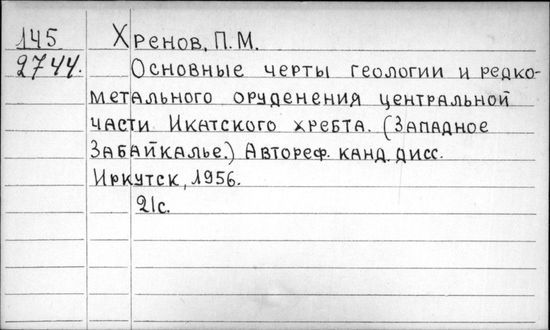 145 Хренов, П.М.
2744. Основные черты геологии и редко-
метального оруденения центральной
части Икатского хребта. (Западное
Забайкалье.) Автореф. канд. дисс.
Иркутск, 1956.
21с.